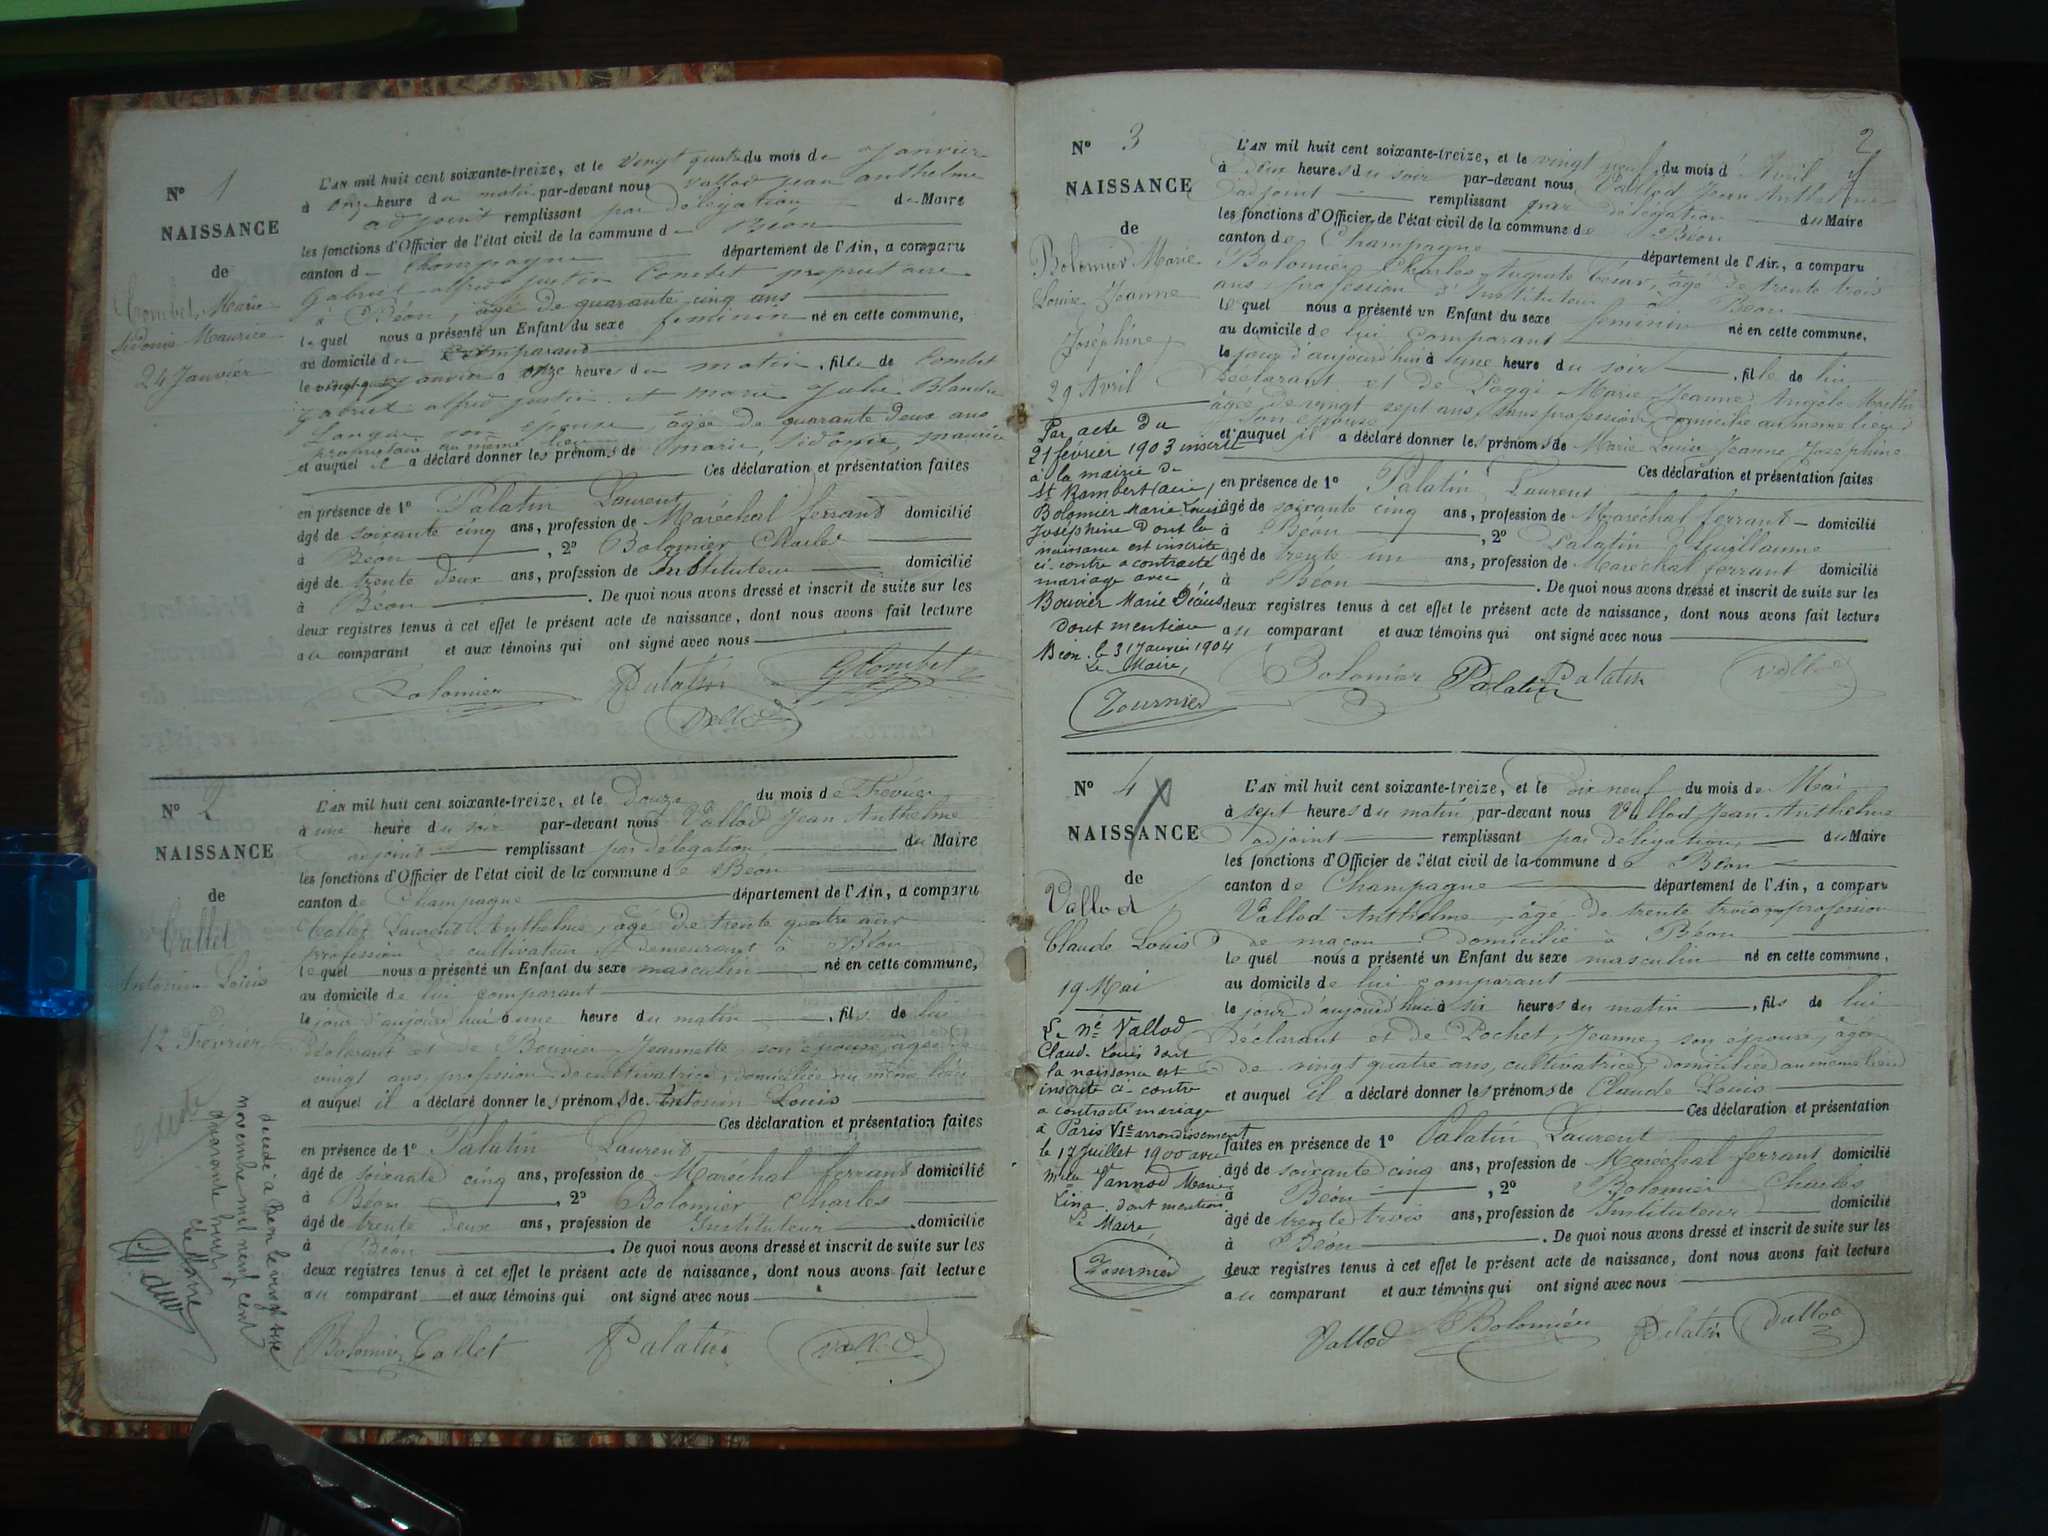 N° 1
NAISSANCE
de
Combet, Marie
Sidonie Maurice
24 Janvier
L'AN mil huit cent soixante-treize, et le vingt quatre du mois de Janvier
à onze heure du matin par-devant nous Vallod Jean Anthelme
adjoint remplissant par délégation du Maire
les fonctions d'Officier de l'état civil de la commune de Béon
canton de Champagne département de l'Ain, a comparu
Gabriel alfred justin Combet propriétaire
à Béon, âgé de quarante cinq ans
lequel nous a présenté un Enfant du sexe féminin né en cette commune,
au domicile du comparant
le vingt quatre Janvier à onze heures du matin, fille de Combet
Gabriel alfred justin et marie Julie Blandin
son épouse, âgée de quarante deux ans
propriétaire au même lieu
et auquel il a déclaré donner les prénoms de marie, sidonie, maurice
Ces déclaration et présentation faites
en présence de 1° Palatin Laurent
âgé de soixante cinq ans, profession de Maréchal ferrant domicilié
à Béon, 2° Bolomier Charles
âgé de trente deux ans, profession de Instituteur domicilié
à Béon. De quoi nous avons dressé et inscrit de suite sur les
deux registres tenus à cet effet le présent acte de naissance, dont nous avons fait lecture
au comparant et aux témoins qui ont signé avec nous
Bolomier Palatin G Combet
Vallod
N° 2
NAISSANCE
de
Callet
Antonin Louis
12 Février
décédé à Béon le vingt six
novembre mil neuf cent
quarante huit
Le Maire
L'AN mil huit cent soixante-treize, et le Douze du mois de Février
à une heure du soir par-devant nous Vallod Jean Anthelme
adjoint remplissant par délégation du Maire
les fonctions d'Officier de l'état civil de la commune de Béon
canton de Champagne département de l'Ain, a comparu
Callet Laurent Anthelme, âgé de trente quatre ans
profession de cultivateur demeurant à Béon
lequel nous a présenté un Enfant du sexe masculin né en cette commune,
au domicile de lui comparant
le jour d'aujourd'hui à une heure du matin, fils de lui
déclarant et de Bouvier Jeannette, son épouse, âgée de
vingt ans, profession de cultivatrice, domiciliée au même lieu
et auquel il a déclaré donner les prénoms de Antonin Louis
Ces déclaration et présentation faites
en présence de 1° Palatin Laurent
âgé de soixante cinq ans, profession de Maréchal ferrant domicilié
à Béon 2° Bolomier Charles
âgé de trente deux ans, profession de Instituteur domicilié
à Béon. De quoi nous avons dressé et inscrit de suite sur les
deux registres tenus à cet effet le présent acte de naissance, dont nous avons fait lecture
au comparant et aux témoins qui ont signé avec nous
Bolomier Callet Palatin Vallod
2
N° 3
NAISSANCE
de
Bolomier Marie
Louise Jeanne
Joséphine,
29 Avril
Par acte du
21 février 1903 inscrit
à la mairie de
St Rambert (ain),
Bolomier Marie Louise
Joséphine dont la
naissance est inscrite
ci-contre a contracté
mariage avec
Bouvier Marie Décius
dont mention
Béon le 31 Janvier 1904
Le Maire,
Tournier
L'AN mil huit cent soixante-treize, et le vingt neuf du mois d'Avril
à deux heures du soir par-devant nous Vallod Jean Anthelme
adjoint remplissant par délégation du Maire
les fonctions d'Officier de l'état civil de la commune de Béon
canton de Champagne département de l'Ain, a comparu
Bolomier, Charles Auguste César, âgé de trente trois
ans, profession d'Instituteur à Béon
lequel nous a présenté un Enfant du sexe féminin né en cette commune,
au domicile de lui comparant
le jour d'aujourd'hui à une heure du soir, fille de lui
déclarant et de Poggi Marie Jeanne Angèle Marthe
âgée de vingt sept ans, sans profession, domiciliée au même lieu
son épouse
et auquel il a déclaré donner les prénoms de Marie Louise Jeanne Joséphine
Ces déclaration et présentation faites
en présence de 1° Palatin Laurent
âgé de soixante cinq ans, profession de Maréchal ferrant domicilié
à Béon, 2° Palatin Guillaume
âgé de trente un ans, profession de Maréchal ferrant domicilié
à Béon. De quoi nous avons dressé et inscrit de suite sur les
deux registres tenus à cet effet le présent acte de naissance, dont nous avons fait lecture
au comparant et aux témoins qui ont signé avec nous
Bolomier Palatin Palatin Vallod
N° 4
NAISSANCE
de
Vallod
Claude Louis
19 Mai
Le né Vallod
Claude Louis dont
la naissance est
inscrite ci-contre
a contracté mariage
à Paris VIe arrondissement
le 17 Juillet 1900 avec
Melle Vannod Marie
Lina dont mention
Le Maire
Tournier
L'AN mil huit cent soixante-treize, et le dix neuf du mois de Mai
à sept heures du matin par-devant nous Vallod Jean Anthelme
adjoint remplissant par délégation du Maire
les fonctions d'Officier de l'état civil de la commune de Béon
canton de Champagne département de l'Ain, a comparu
Vallod Anthelme, âgé de trente trois ans profession
de maçon domicilié à Béon
lequel nous a présenté un Enfant du sexe masculin né en cette commune,
au domicile de lui comparant
le jour d'aujourd'hui à six heures du matin, fils de lui
déclarant et de Pochet, Jeanne, son épouse, âgée
de vingt quatre ans, cultivatrice, domiciliée au même lieu
et auquel il a déclaré donner les prénoms de Claude Louis
Ces déclaration et présentation
faites en présence de 1° Palatin Laurent
âgé de soixante cinq ans, profession de Maréchal ferrant domicilié
à Béon, 2° Bolomier Charles
âgé de trente trois ans, profession de Instituteur domicilié
à Béon. De quoi nous avons dressé et inscrit de suite sur les
deux registres tenus à cet effet le présent acte de naissance, dont nous avons fait lecture
au comparant et aux témoins qui ont signé avec nous
Vallod Bolomier Palatin Vallod